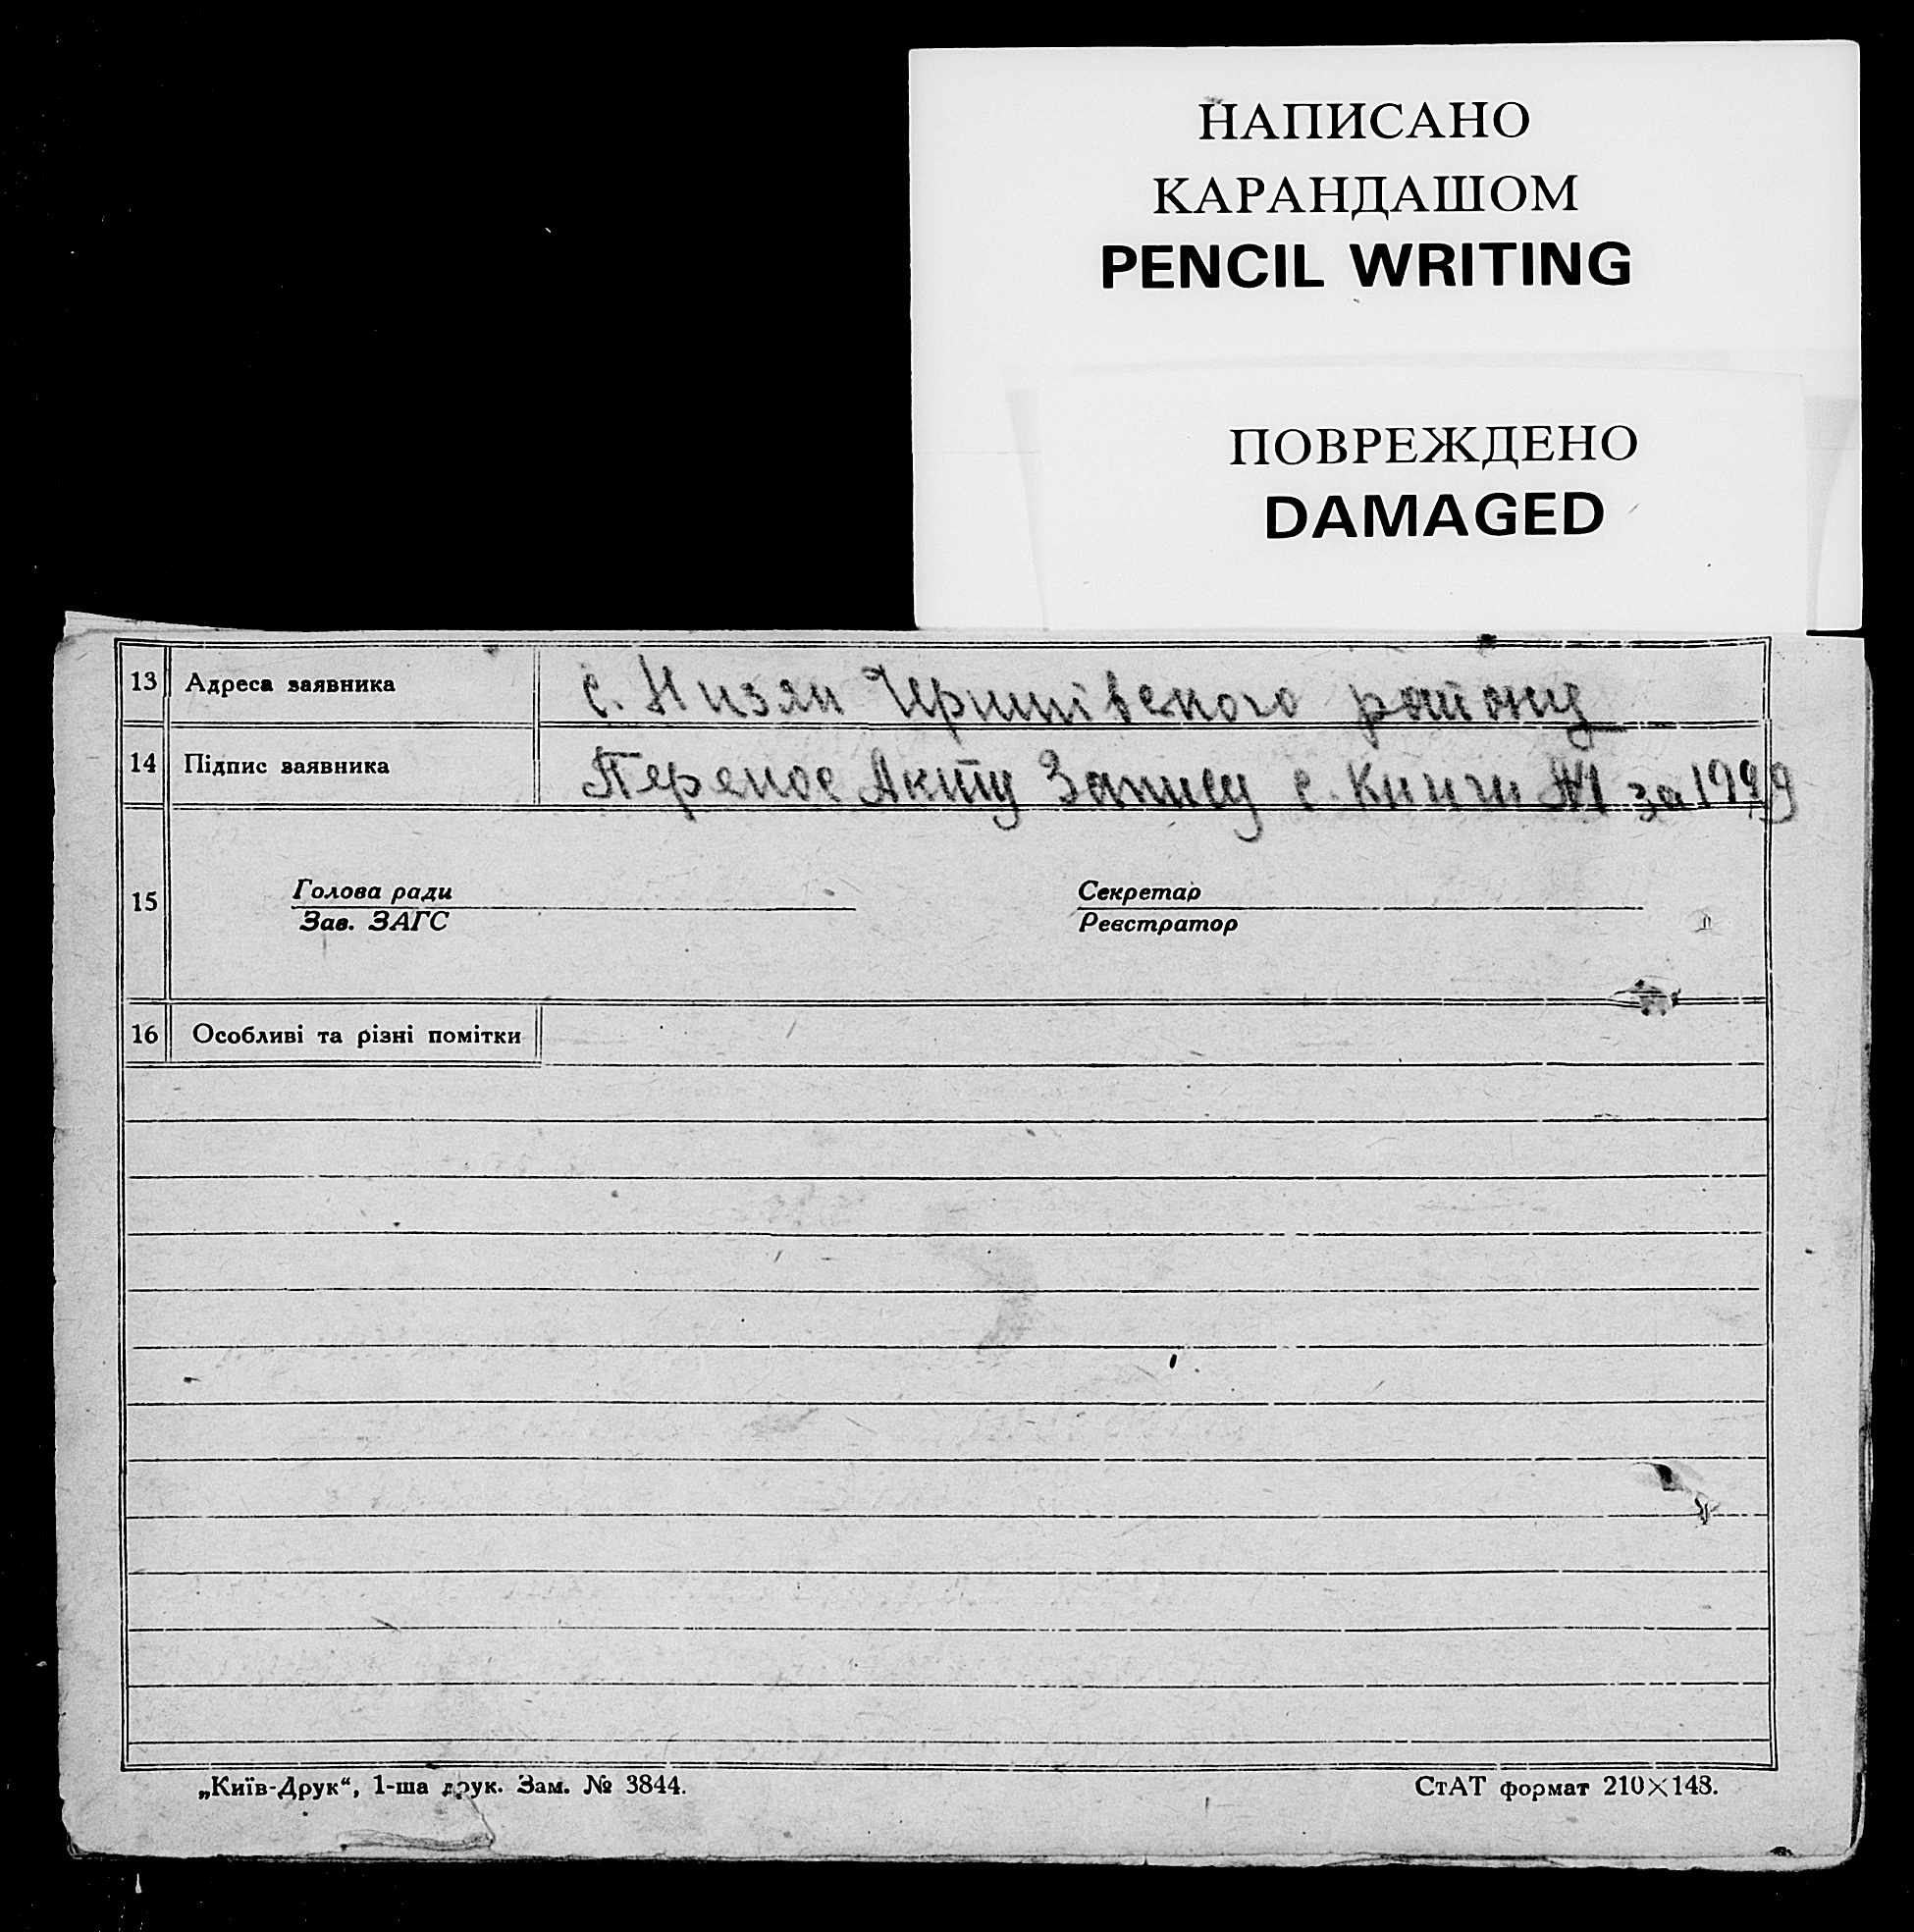 НАПИСАНО
КАРАНДАШОМ
PENCIL WRITING
ПОВРЕЖДЕНО
DAMAGED
13 Адреса заявника с. Низян району
14 Підпис заявника Перенос Акту Запису с. Книги №1 за
15 Голова ради Секретар
Зав. ЗАГС Реєстратор
16 Особливі та різні помітки
„Київ-Друк“, 1-ша друк. Зам. № 3844. СтАТ формат 210×148.